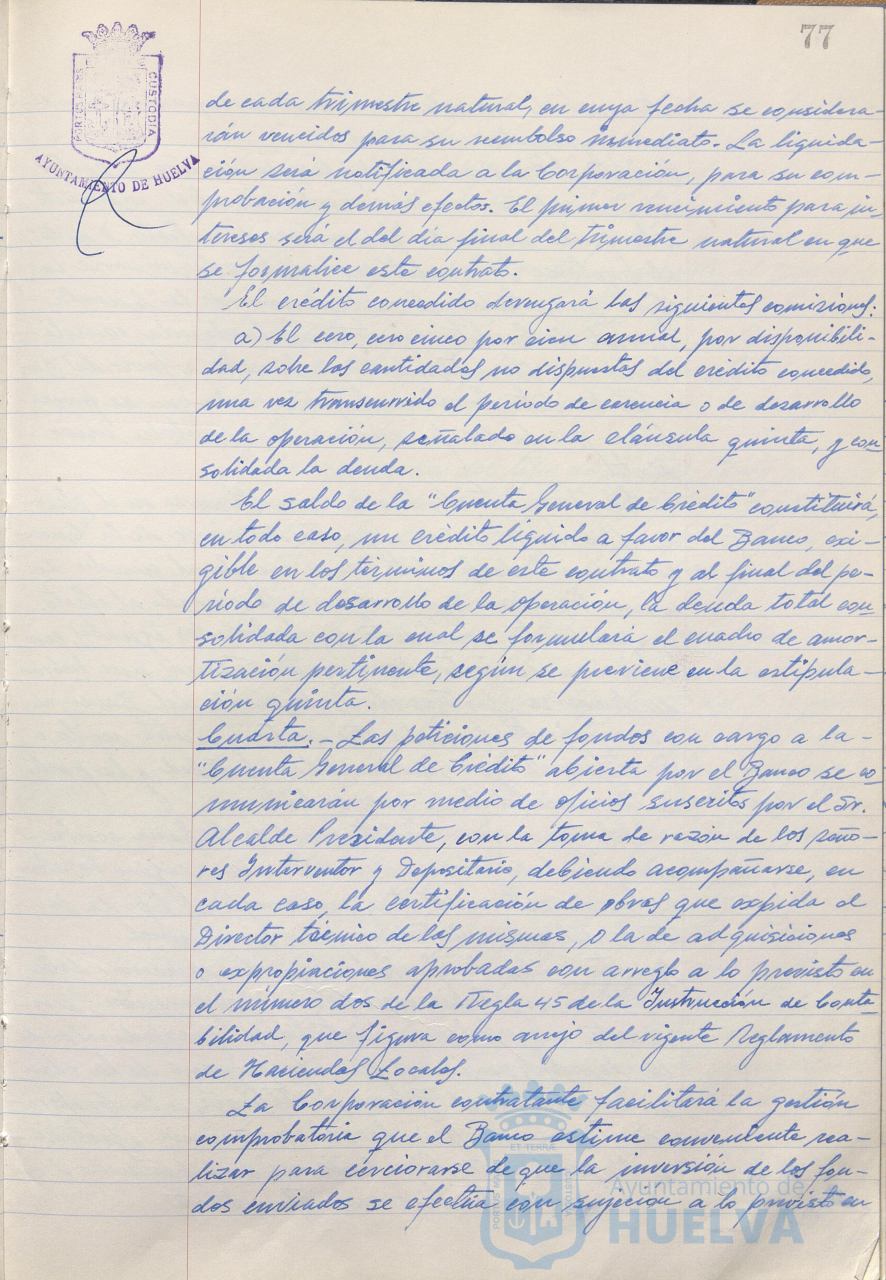 77
PORTUS MARIS
CUSTODIA
AYUNTAMIENTO DE HUELVA
de cada trimestre natural, en cuya fecha se considera-
rán vencidos para su reembolso inmediato. La liquida-
ción será notificada a la Corporación, para su com-
probación y demás efectos. El primer vencimiento para in-
tereses será el del día final del trimestre natural en que
se formalice este contrato.
El crédito concedido devengará las siguientes comisiones:
a) El cero, cero cinco por cien anual, por disponibili-
dad, sobre las cantidades no dispuestas del crédito concedido,
una vez transcurrido el período de carencia o de desarrollo
de la operación, señalado en la cláusula quinta, y con-
solidada la deuda.
El saldo de la "Cuenta General de Crédito" constituirá,
en todo caso, un crédito líquido a favor del Banco, exi-
gible en los términos de este contrato y al final del pe-
ríodo de desarrollo de la operación, la deuda total con-
solidada con la cual se formulará el cuadro de amor-
tización pertinente, según se previene en la estipula-
ción quinta.
Cuarta.- Las peticiones de fondos con cargo a la-
"Cuenta General de Crédito" abierta por el Banco se co-
municarán por medio de oficios suscritos por el Sr.
Alcalde Presidente, con la toma de razón de los seño-
res Interventor y Depositario, debiendo acompañarse, en
cada caso, la certificación de obras que expida el
Director técnico de las mismas, o la de adquisiciones
o expropiaciones aprobadas con arreglo a lo previsto en
el número dos de la Regla 45 de la Instrucción de Conta-
bilidad, que figura como anejo del vigente Reglamento
de Haciendas Locales.
La Corporación contratante facilitará la gestión
comprobatoria que el Banco estime conveniente rea-
lizar para cerciorarse de que la inversión de los fon-
dos enviados se efectúa con sujeción a lo previsto en
Ayuntamiento de
HUELVA